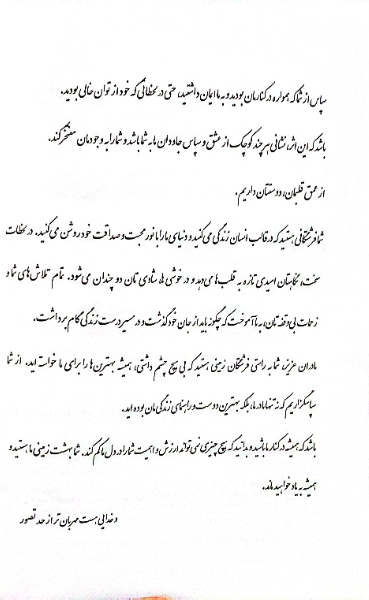 سپاس از شما که همواره در کنارمان بودید و به ما ایمان داشتید، حتی در لحظاتی که خود از توان خالی بودید.
باشد که این اثر، نشانی هر چند کوچک از عشق و سپاس جاودان ما به شما باشد و شما را به وجودمان مفتخر کند.
از عمق قلبمان، دوستتان داریم.
شما فرشتگانی هستید که در قالب انسان زندگی می‌کنید و دنیای ما را با نور محبت و صداقت خود روشن می‌کنید. در لحظات
سخت، نگاهتان امیدی تازه به قلب‌ها می‌دهد و در خوشی‌ها، شادی‌تان دو چندان می‌شود. تمام تلاش‌های شما و
زحمات بی‌وقفه‌تان، به ما آموخت که چگونه باید از جان خود گذشت و در مسیر درست زندگی گام برداشت.
مادران عزیز، شما به راستی فرشتگان زمینی هستید که بی هیچ چشم داشتی، همیشه بهترین‌ها را برای ما خواسته اید. از شما
سپاسگزاریم که نه تنها مادر ما، بلکه بهترین دوست و راهنمای زندگی‌مان بوده اید.
باشد که همیشه در کنار ما باشید و بدانید که هیچ چیزی نمی‌تواند ارزش و اهمیت شما را در دل ما کم کند. شما بهشت زمینی ما هستید و
همیشه به یاد خواهید ماند.
و خدایی هست مهربان تر از حد تصور